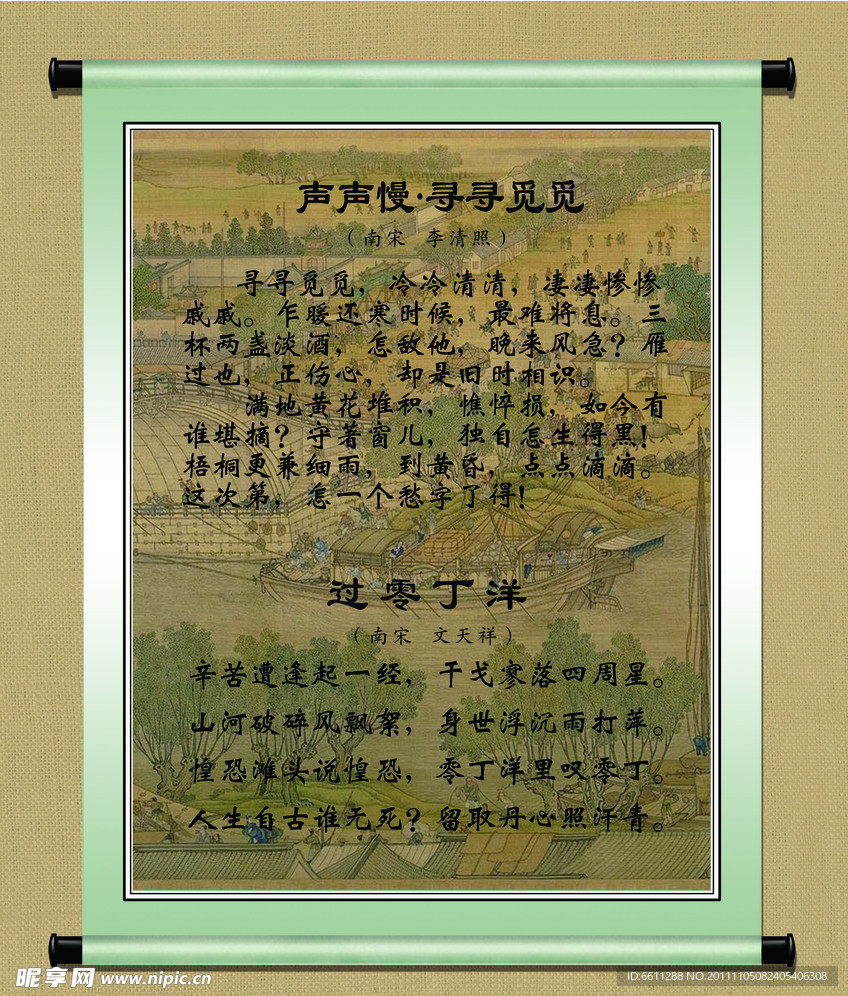 声声慢·寻寻觅觅
（南宋 李清照）
寻寻觅觅，冷冷清清，凄凄惨惨
戚戚。乍暖还寒时候，最难将息。三
杯两盏淡酒，怎敌他，晚来风急？雁
过也，正伤心，却是旧时相识。
满地黄花堆积，憔悴损，如今有
谁堪摘？守著窗儿，独自怎生得黑！
梧桐更兼细雨，到黄昏，点点滴滴。
这次第，怎一个愁字了得！
过零丁洋
（南宋 文天祥）
辛苦遭逢起一经，干戈寥落四周星。
山河破碎风飘絮，身世浮沉雨打萍。
惶恐滩头说惶恐，零丁洋里叹零丁。
人生自古谁无死？留取丹心照汗青。
昵享网 www.nipic.cn
ID:6611288 NO:20111105082405406308